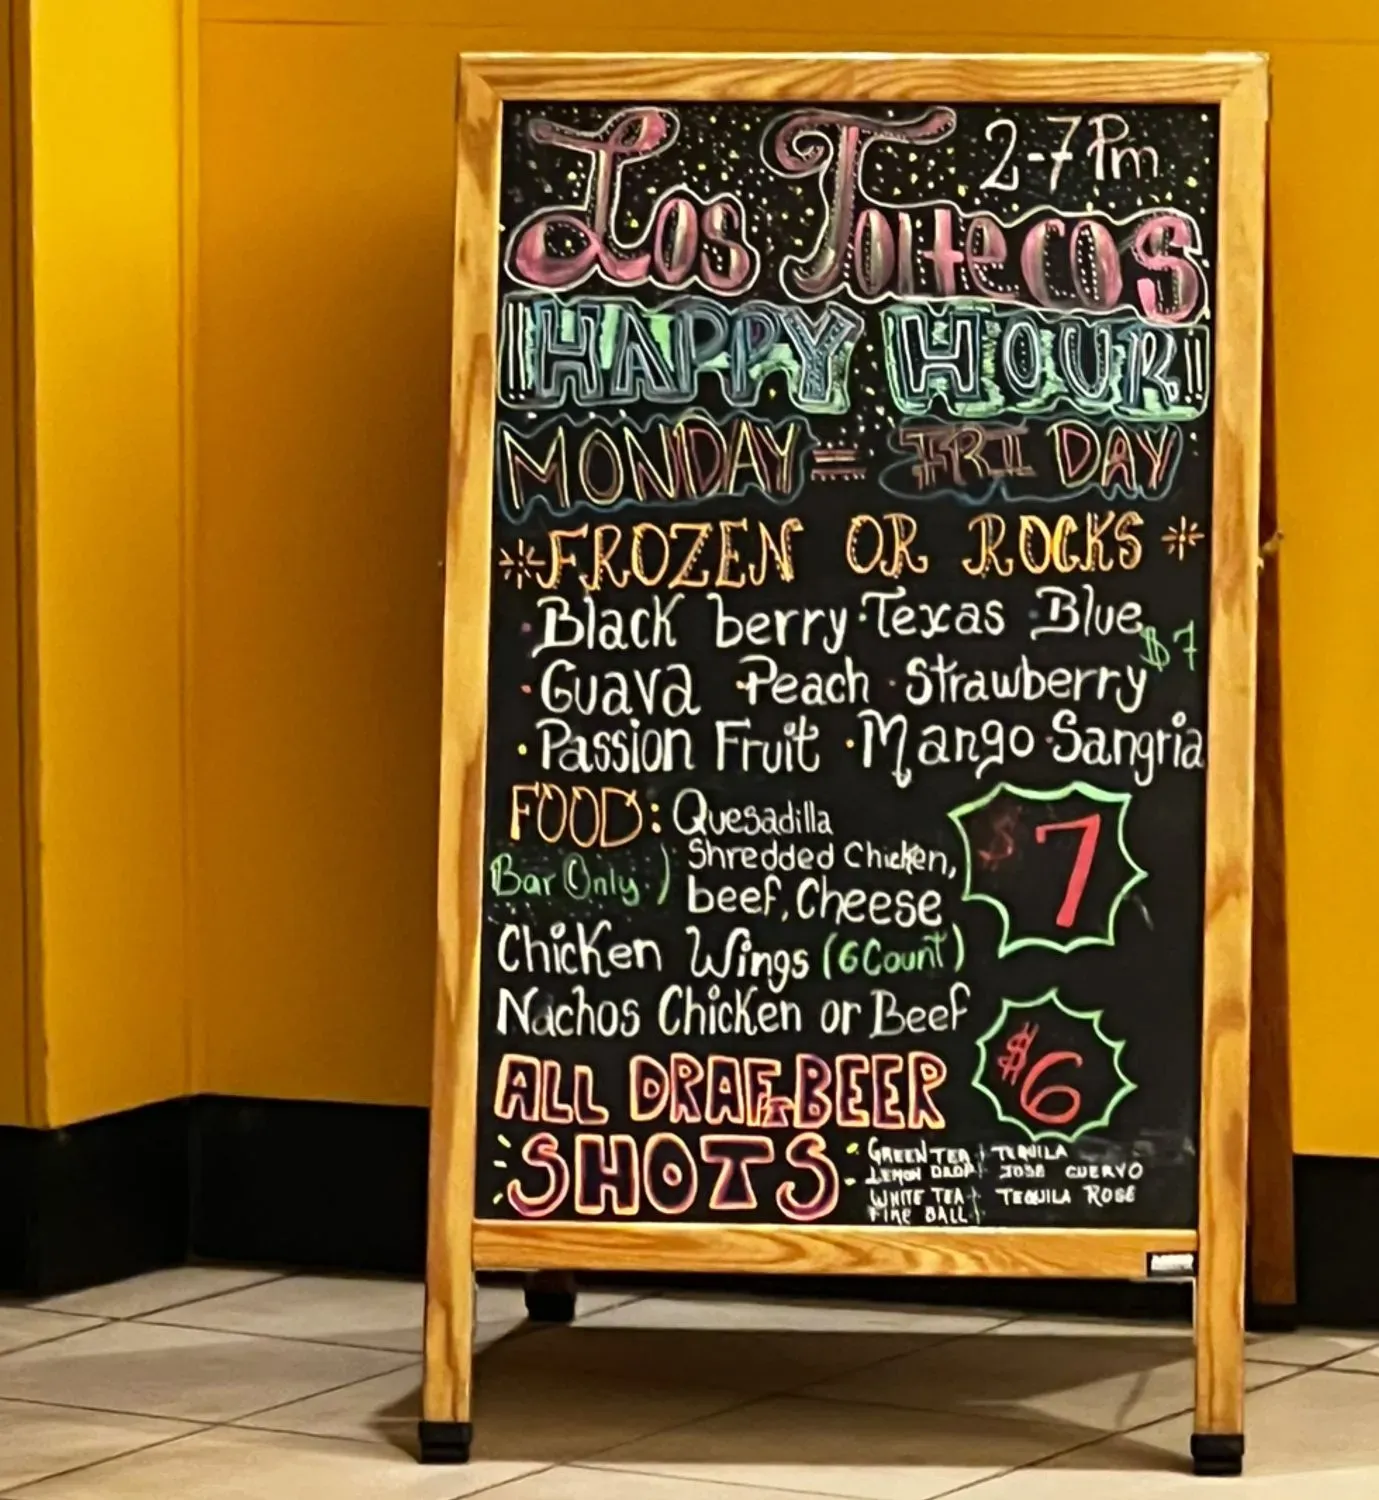 2-7 Pm
Los Toltecos
!!HAPPY HOUR!!
MONDAY = FRIDAY
FROZEN OR ROCKS
·Black berry ·Texas Blue
$7
·Guava ·Peach ·Strawberry
·Passion Fruit ·Mango ·Sangria
FOOD: Quesadilla
Shredded Chicken,
Bar Only.) beef, Cheese
$7
Chicken Wings (6 Count)
Nachos Chicken or Beef
ALL DRAFT BEER
$6
SHOTS
GREEN TEA TEQUILA
LEMON DROP JOSE CUERVO
WHITE TEA TEQUILA ROSE
FIRE BALL